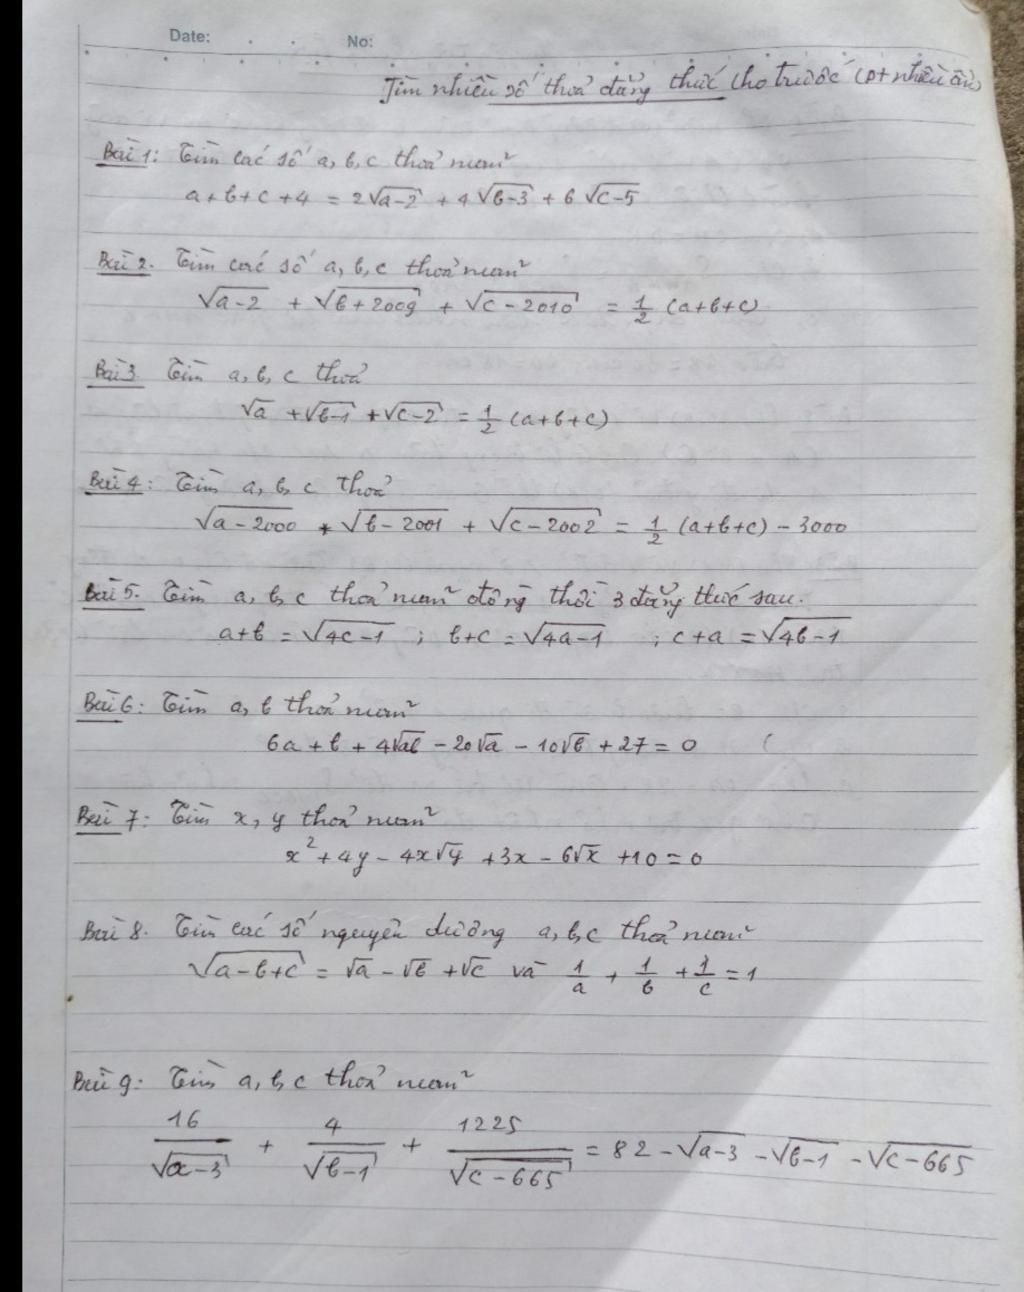 Date: No:
Tìm nhiều số thoả đẳng thức cho trước (pt nhiều ẩn)
Bài 1: Tìm các số a, b, c thoả mãn
a + b + c + 4 = 2√(a-2) + 4√(b-3) + 6√(c-5)
Bài 2. Tìm các số a, b, c thoả mãn
√(a-2) + √(b+2009) + √(c-2010) = 1/2 (a+b+c)
Bài 3 Tìm a, b, c thoả
√a + √(b-1) + √(c-2) = 1/2 (a+b+c)
Bài 4: Tìm a, b, c thoả
√(a-2000) + √(b-2001) + √(c-2002) = 1/2 (a+b+c) - 3000
Bài 5. Tìm a, b, c thoả mãn đồng thời 3 đẳng thức sau.
a+b = √(4c-1) ; b+c = √(4a-1) ; c+a = √(4b-1)
Bài 6: Tìm a, b thoả mãn
6a + b + 4√(ab) - 20√a - 10√b + 27 = 0 (
Bài 7: Tìm x, y thoả mãn
x² + 4y - 4x√y + 3x - 6√x + 10 = 0
Bài 8. Tìm các số nguyên dương a, b, c thoả mãn
√(a-b+c) = √a - √b + √c và 1/a + 1/b + 1/c = 1
Bài 9: Tìm a, b, c thoả mãn
16/√(a-3) + 4/√(b-1) + 1225/√(c-665) = 82 - √(a-3) - √(b-1) - √(c-665)